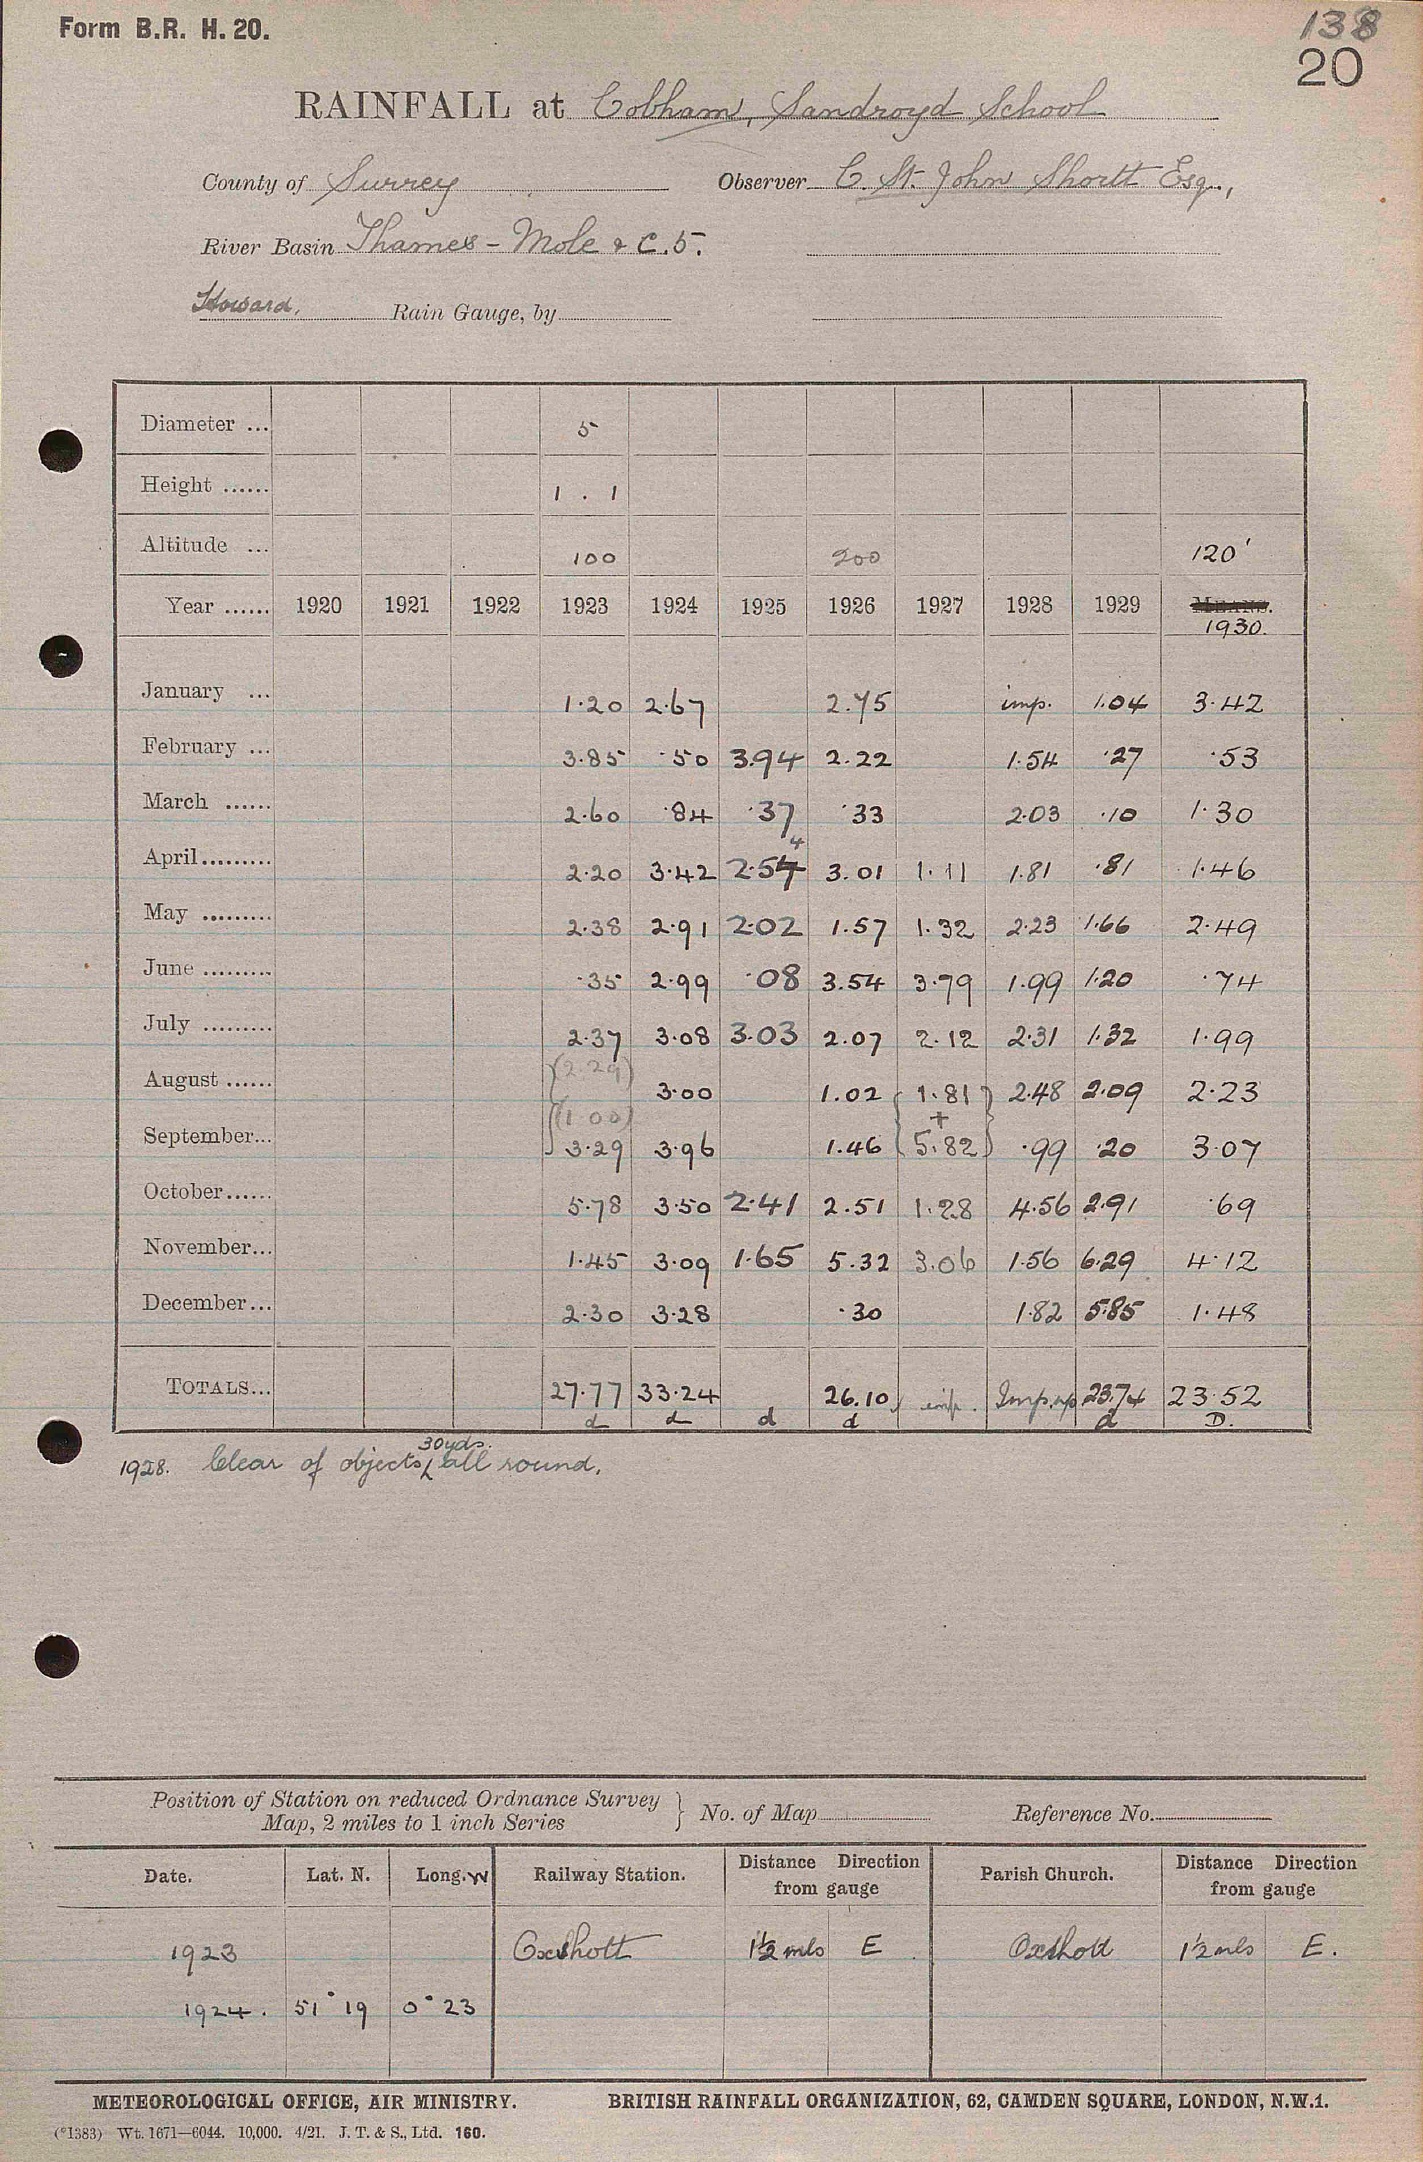 Form B.R. H. 20.
138
20
RAINFALL at Cobham, Sandroyd School
County of Surrey Observer C. St. John Shortt Esq.,
River Basin Thames - Mole & C.5.
Howard, Rain Gauge, by
Diameter ... 5
Height ...... 1 . 1
Altitude ... 100 200 120'
Year ...... 1920 1921 1922 1923 1924 1925 1926 1927 1928 1929 MEANS.
1930.
January ... 1.20 2.67 2.75 imp. 1.04 3.42
February ... 3.85 .50 3.94 2.22 1.54 .27 .53
March ...... 2.60 .84 .37 .33 2.03 .10 1.30
4
April ......... 2.20 3.42 2.54 3.01 1.11 1.81 .81 1.46
May ......... 2.38 2.91 2.02 1.57 1.32 2.23 1.66 2.49
June ......... .35 2.99 .08 3.54 3.79 1.99 1.20 .74
July ......... 2.37 3.08 3.03 2.07 2.12 2.31 1.32 1.99
August ...... (2.29) 3.00 1.02 1.81 2.48 2.09 2.23
(1.00) +
September... 3.29 3.96 1.46 5.82 .99 .20 3.07
October...... 5.78 3.50 2.41 2.51 1.28 4.56 2.91 .69
November... 1.45 3.09 1.65 5.32 3.06 1.56 6.29 4.12
December... 2.30 3.28 .30 1.82 5.85 1.48
TOTALS... 27.77 33.24 26.10 imp. Imp. 23.74 23.52
d d d d d D.
30yds.
1928. Clear of objects all round.
Position of Station on reduced Ordnance Survey
Map, 2 miles to 1 inch Series } No. of Map Reference No.
Date. Lat. N. Long. W Railway Station. Distance Direction from gauge Parish Church. Distance Direction from gauge
1923 Oxshott 1½ mls E Oxshott 1½ mls E.
1924. 51° 19 0° 23
METEOROLOGICAL OFFICE, AIR MINISTRY. BRITISH RAINFALL ORGANIZATION, 62, CAMDEN SQUARE, LONDON, N.W.1.
(*1383) Wt. 1671—6044. 10,000. 4/21. J. T. & S., Ltd. 160.